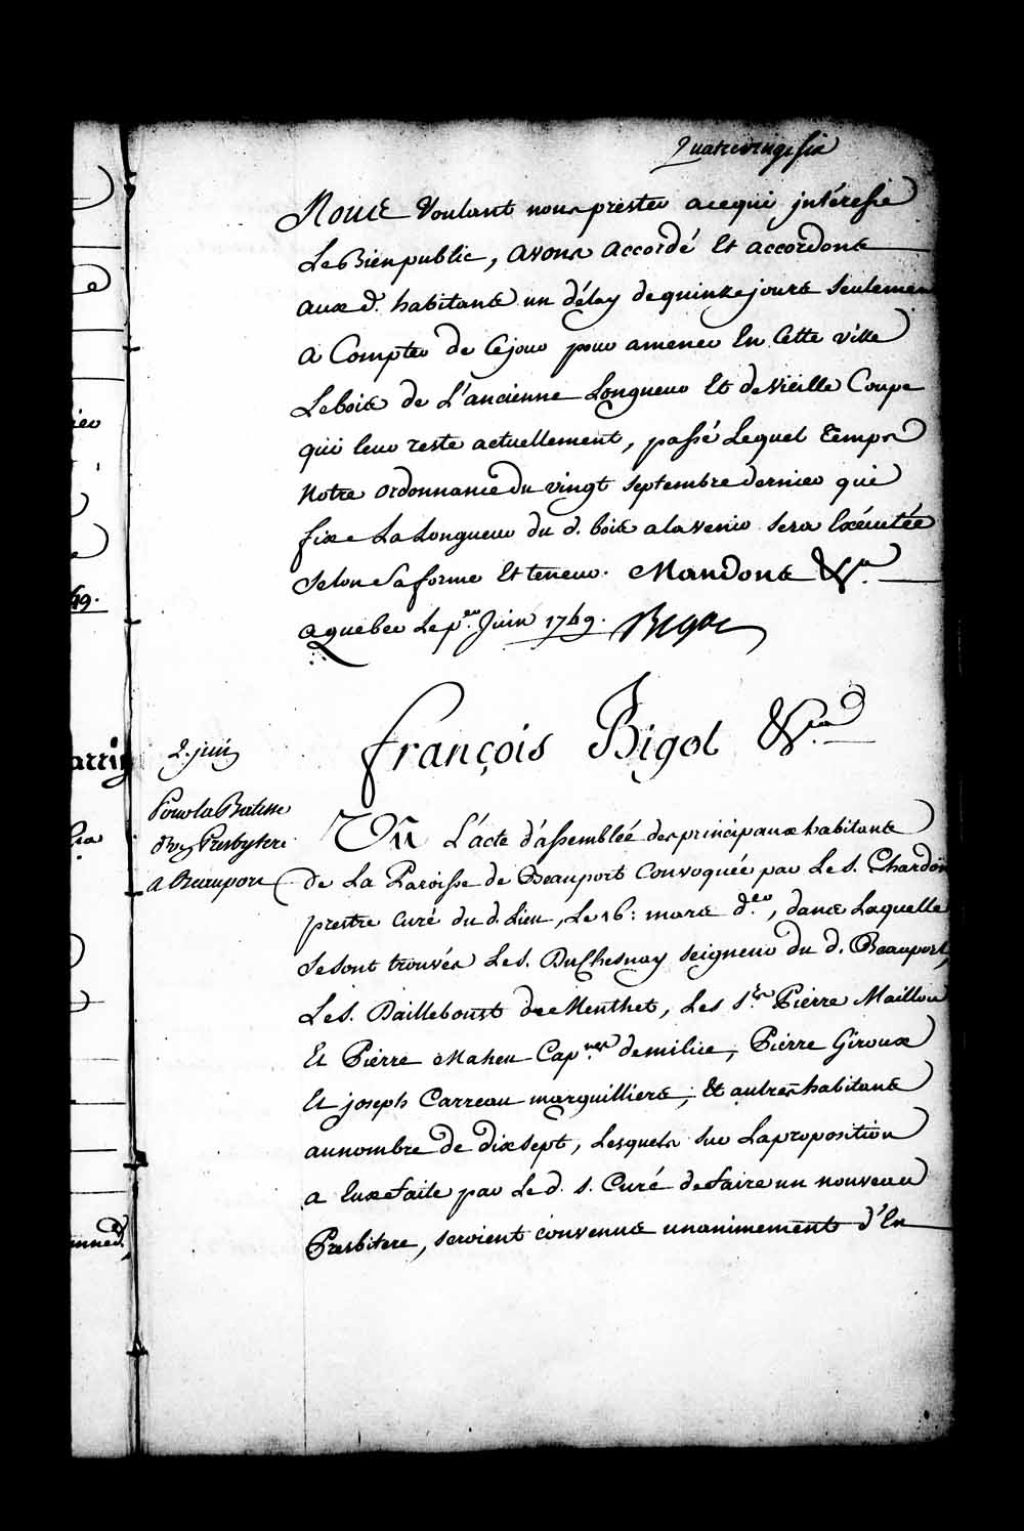 Quatrevingt six
Nous Voulant nous prester a ce qui jntéresse
Le Bien public, avons accordé Et accordons
aux d. habitans un délay de quinze jours seulement
a Compter de ce jour pour amener En Cette ville
Le bois de L'ancienne Longueur Et de vieille Coupe
qui leur reste actuellement, passé Lequel temps
Notre ordonnance du vingt septembre dernier qui
fixe La Longueur du d. bois a la venir sera Exécutée
selon sa forme Et teneur. Mandons &.a
a quebec Le p.er Juin 1749. Bigot
françois Bigot &.a
2. juin
Pour la Batisse
d'un Presbytere
a Beauport
Vû L'acte d'assembleé des principaux habitans
de La Paroisse de Beauport Convoquée par Le S. Chardon
prestre Curé du d. Lieu, Le 16: mars d.er, dans Laquelle
se sont trouvés Le S. DuChesnay seigneur du d. Beauport,
Le S. Daillebourst de Menthet, Les S.rs Pierre Maillou
Et Pierre Maheu Cap.nes de milice, Pierre Giroux
Et joseph Carreau marguilliers; Et autres habitans
au nombre de dix sept, Lesquels sur La proposition
a Eux faite par Le d. S. Curé de faire un nouveau
Presbitere, seroient convenus unanimement d'En